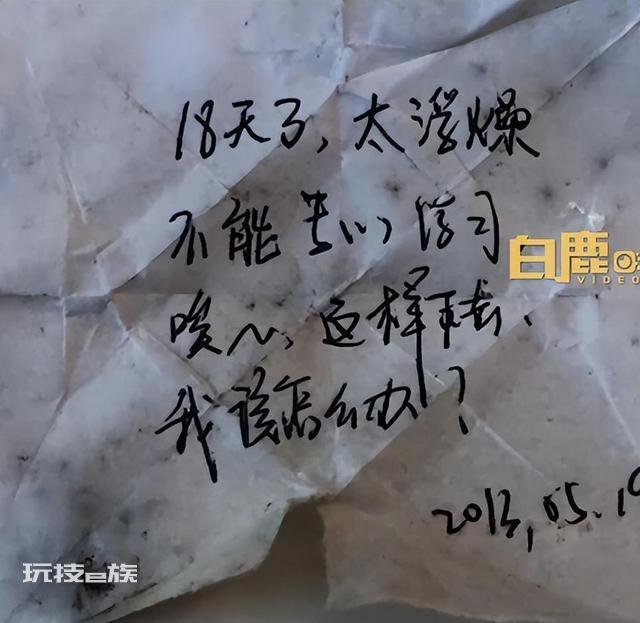 18天了，太浮燥
不能专心学习
唉~，这样下去、
我该怎么办？
2013,05.19
白鹿
VIDEO
玩技e族